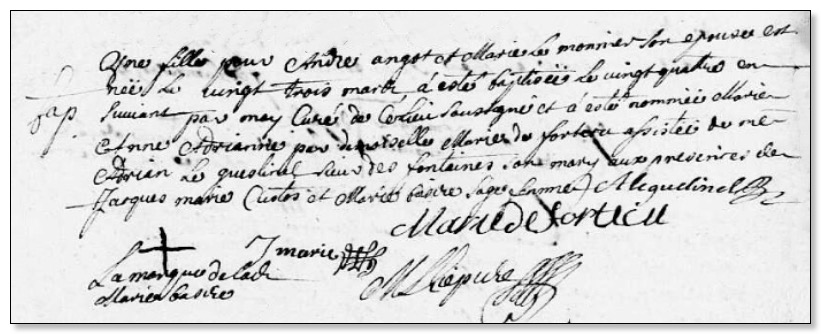 Une fille pour André angot et Marie le monnier son epousée est
neë le vingt trois mardi à esté baptiseë le vingt quatre en
suivant par moy Curé de ce lieu soussigné et à esté nommeë Marie
Anne Adrianne par demoiselle Marie de fortecu assisteë de me
Adrian le quelinel sieur des fontaines son mary aux presences de
Jacques marie Custos et Marie basire sage femme
Marie de forticu
J marie
La marque de ladt
Marie basire